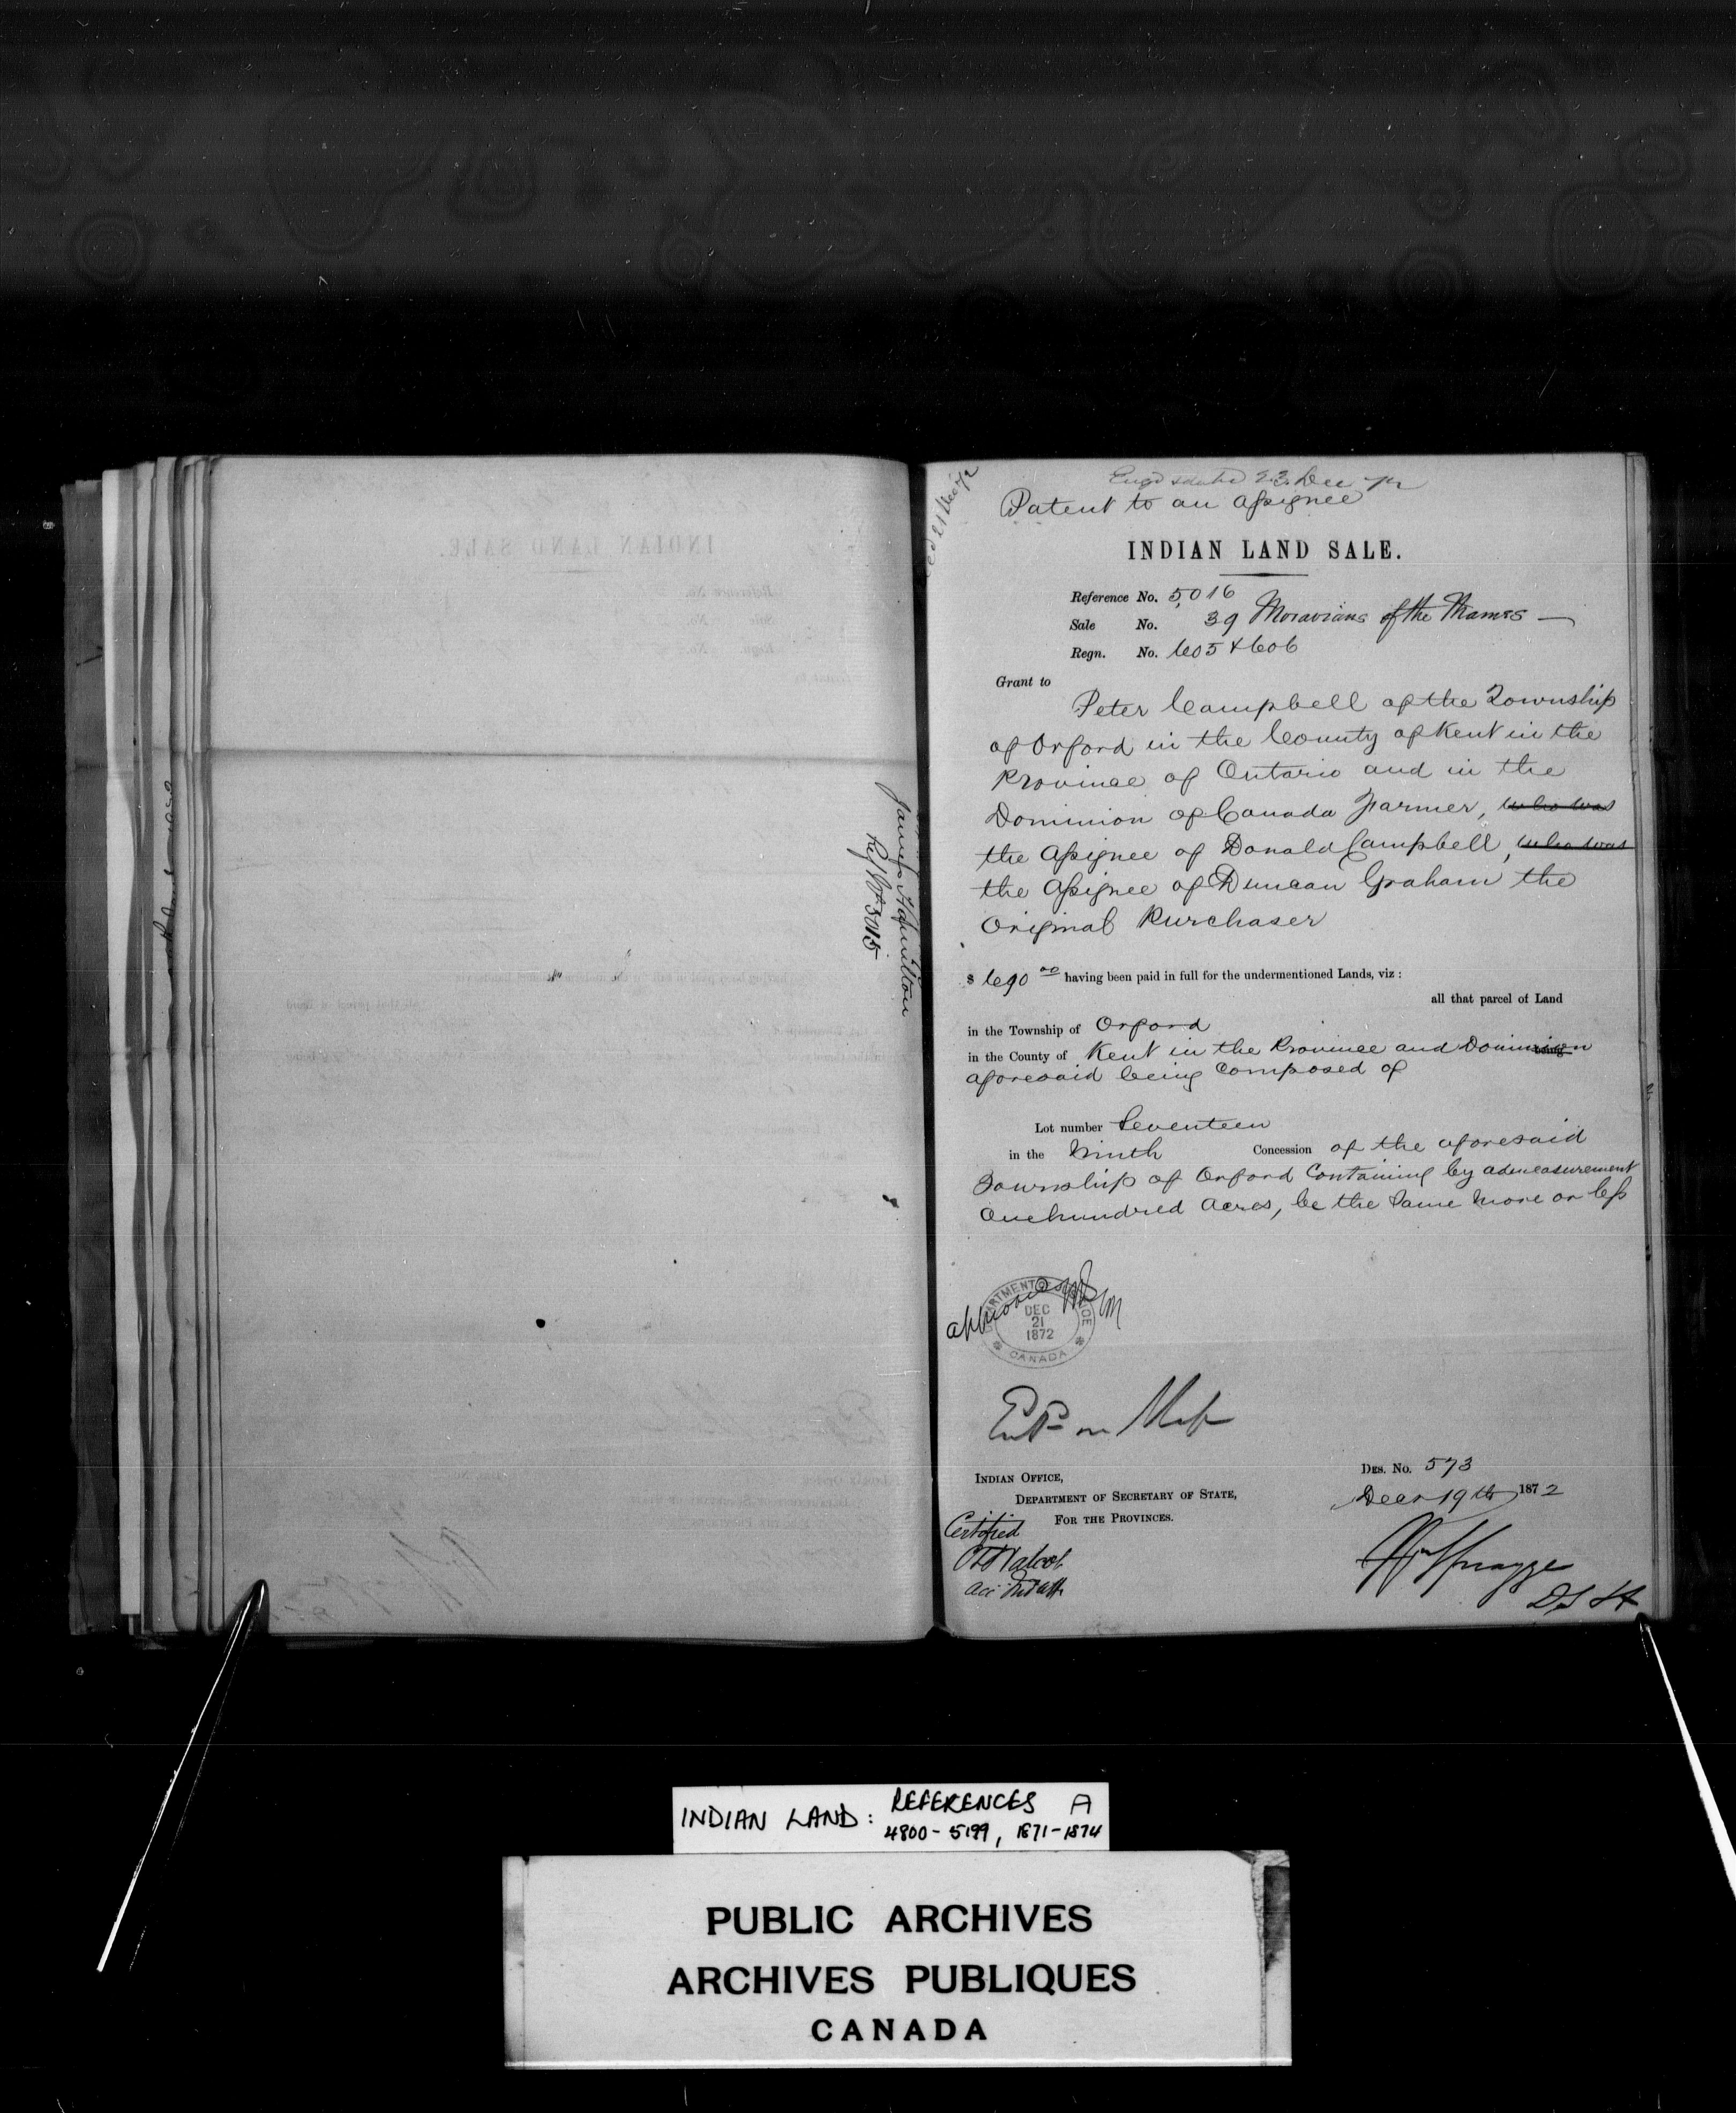 James Hamilton
Ref No 5015
Eng'd & dated 23 Dec 72
Patent to an Assignee
INDIAN LAND SALE.
Reference No. 5016
Sale No. 39 Moravians of the Thames —
Regn. No. 605 & 606
Grant to
Peter Campbell of the Township
of Orford in the County of Kent in the
Province of Ontario and in the
Dominion of Canada Farmer, who was
the Assignee of Donald Campbell, who was
the Assignee of Duncan Graham the
Original Purchaser
$ 690 00 having been paid in full for the undermentioned Lands, viz:
all that parcel of Land
in the Township of Orford
in the County of Kent in the Province and Dominion being
aforesaid being Composed of
Lot number Seventeen
in the Ninth Concession of the aforesaid
Township of Orford Containing by admeasurement
One hundred Acres, be the same more or less
approved
DEPARTMENT OF JUSTICE
DEC
21
1872
CANADA
Entd on Map
INDIAN OFFICE,
DEPARTMENT OF SECRETARY OF STATE,
FOR THE PROVINCES.
Des. No. 573
Decr 19th 1872
Certified
CTWalcot
Acc Ind Aff
WmSpragge
D S I A
INDIAN LAND: REFERENCES A
4800-5199, 1871-1874
PUBLIC ARCHIVES
ARCHIVES PUBLIQUES
CANADA